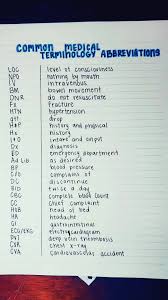 COMMON MEDICAL
TERMINOLOGY ABBREVIATIONS
LOC level of consciousness
NPO nothing by mouth
IV intravenous
BM bowel movement
DNR do not resuscitate
Fx fracture
HTN hypertension
gtt drop
H&P history and physical
Hx history
I&O intake and output
Dx diagnosis
ED emergency department
Ad Lib as desired
BP blood pressure
C/O complains of
DC discontinue
BID twice a day
CBC complete blood count
CC chief complaint
HOB head of bed
HA headache
GI gastrointestinal
ECG/EKG electrocardiogram
DVT deep vein thrombosis
CXR chest x-ray
CVA cardiovascular accident